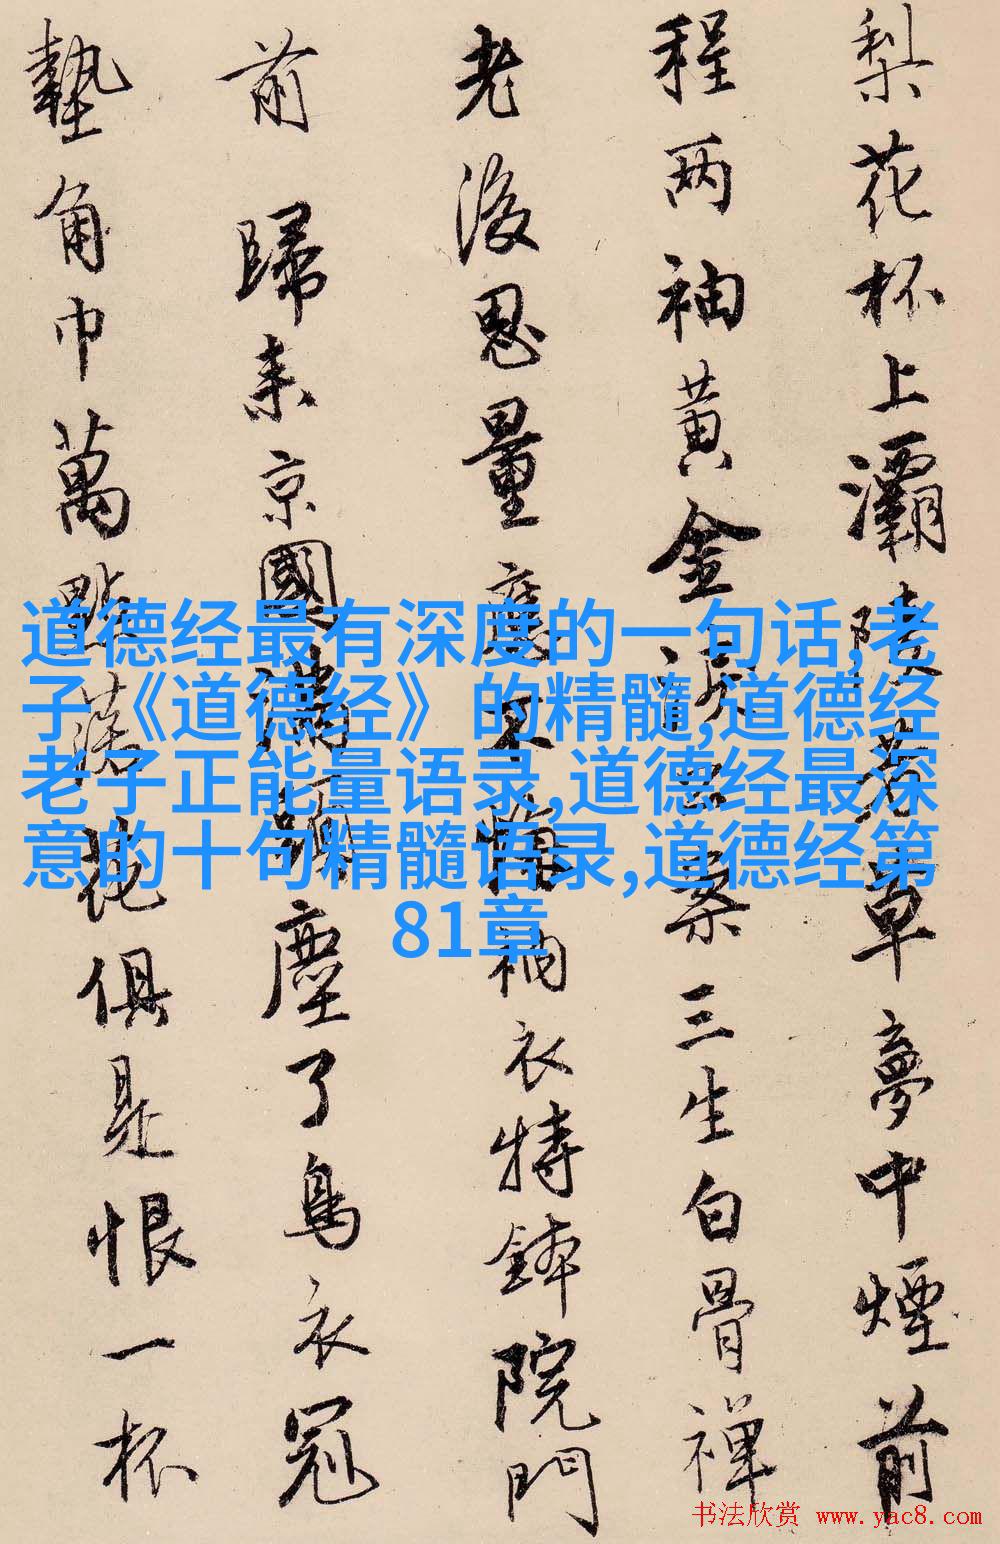 梨花杯上灞陵春草夢中煙前
程两袖黄金淚公案三生白骨禅
老後思量應不悔衲衣持鉢院門
前 歸来京國滿頭塵了烏衣冠
墊角巾萬點落花俱是恨一杯
道德经最有深度的一句话,老
子《道德经》的精髓,道德经
老子正能量语录,道德经最深
意的十句精髓语录,道德经第
81章
书法欣赏 www.yac8.com